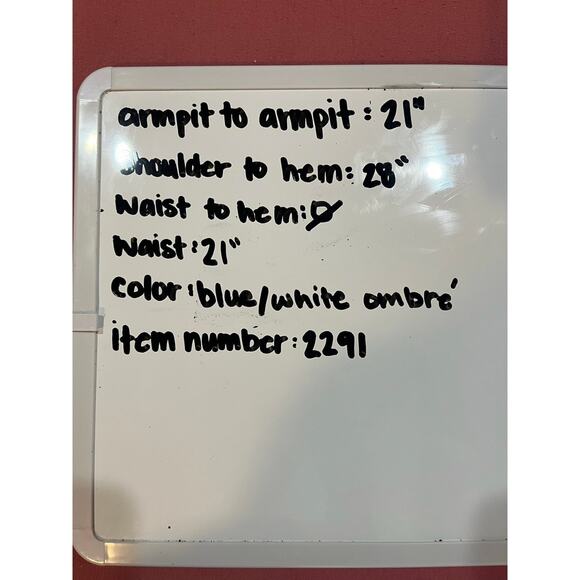 armpit to armpit: 21"
shoulder to hem: 28"
waist to hem: Ø
waist: 21"
color: blue/white ombré
item number: 2291